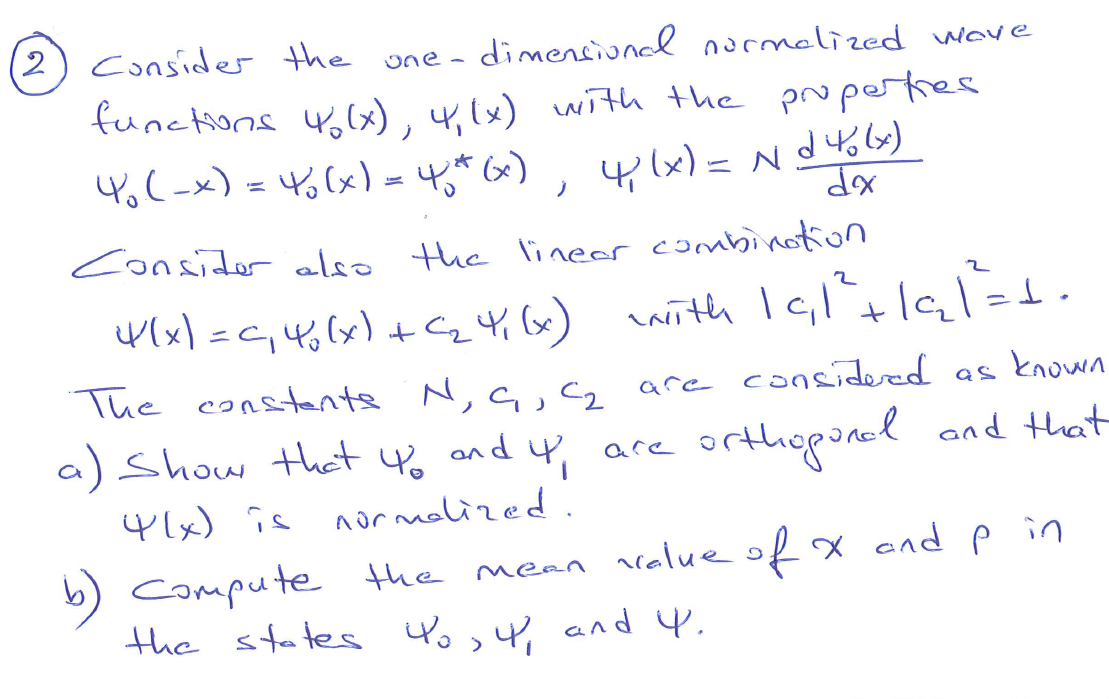 2 Consider the one-dimensional normalized wave
functions Ψ₀(x), Ψ₁(x) with the properties
Ψ₀(-x) = Ψ₀(x) = Ψ₀*(x), Ψ₁(x) = N dΨ₀(x)/dx
Consider also the linear combination
Ψ(x) = c₁Ψ₀(x) + c₂Ψ₁(x) with |c₁|² + |c₂|² = 1.
The constants N, c₁, c₂ are considered as known
a) Show that Ψ₀ and Ψ₁ are orthogonal and that
Ψ(x) is normalized.
b) Compute the mean value of x and p in
the states Ψ₀, Ψ₁ and Ψ.